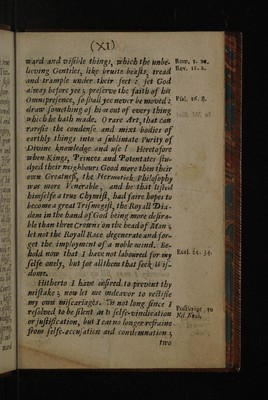 (XI)
ward and visible things, which the unbe-
lieving Gentiles, like bruite beasts, tread
and trample under their feet: set God
alway before yee; preserve the faith of his
Omnipresence, so shall yee never be moved:
draw something of him out of every thing
which he hath made. O rare Art, that can
rarefie the condense and mixt bodies of
earthly things into a sublimate Purity of
Divine knowledge and use! Heretofore
when Kings, Princes and Potentates stu-
dyed their neighbours Good more then their
own Greatness, the Hermetick Philosophy
was more Venerable, and he that tisted
himselfe a true Chymist, had faire hopes to
become a great Trismegist, the Royall Dia-
dem in the hand of God being more desira-
ble than three Crowns on the head of Man;
let not the Royall Race degenerate and for-
get the imployment of a noble mind. Be-
hold now that I have not laboured for my
selfe onely, but for all them that seek Wis-
dome.
Hitherto I have desired to prevent thy
mistake; now let me indeavor to rectifie
my own miscariages. 'Tis not long since I
resolved to be silent as to selfe-vindication
or justification, but I can no longer refraine
from selfe-accusation and condemnation;
two
Rom. 1. 20.
Rev. 11. 2.
Psal. 16. 8.
Eccl. 24. 34.
Postscript, to